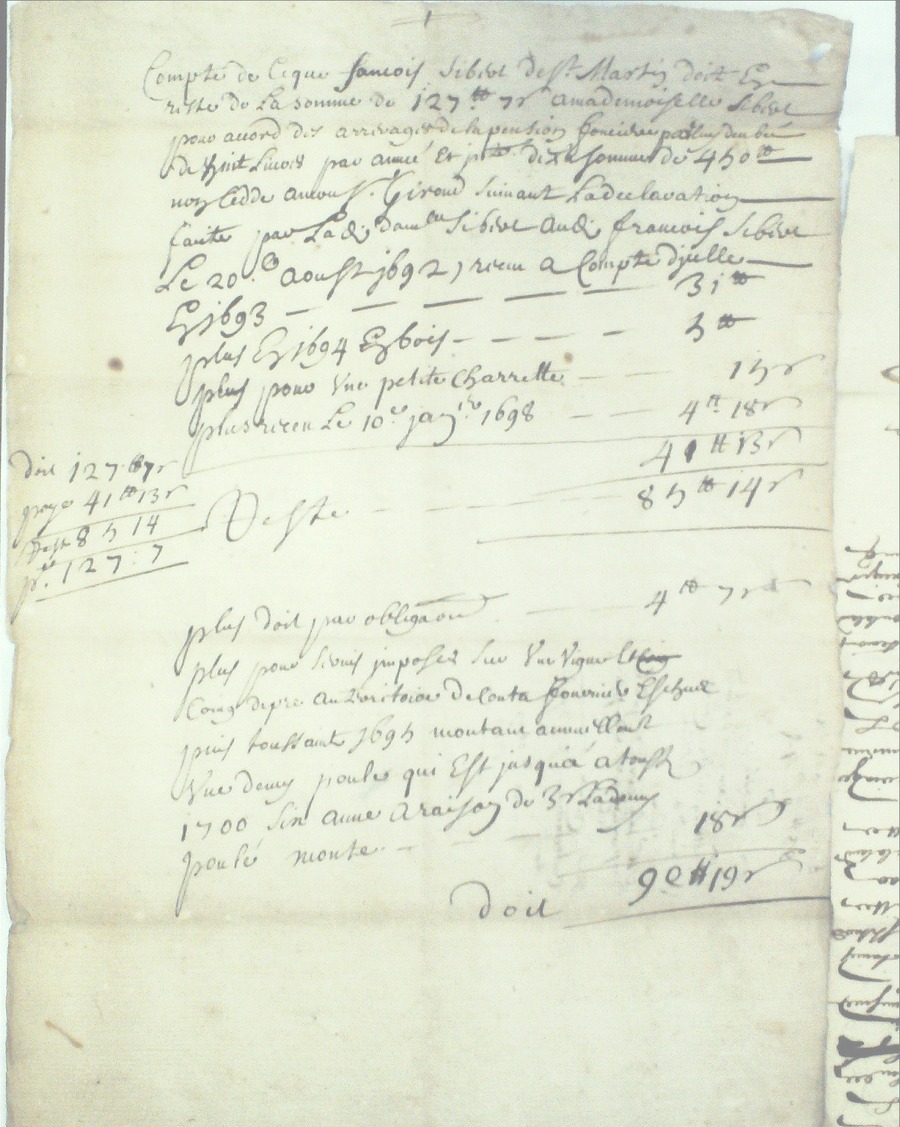 Compte de ceque francois Sibert de St. Martin doit En
reste de La somme de 127 tt 7 s amademoiselle Sibert
pour accord des arrerages de la pension fonciere
de huit Livres par année Et de la somme de 450 tt
non Cedde Giroud suivant La declaration
faite par Ladi. damlle Sibert audi. francois Sibert
Le 20.e aoust 1692, receu a Compte djcelle
En 1693 — — — — — 31 tt
plus En 1694 En bois - - - - 5 tt
plus pour Vne petite Charrette - - 15 s
plus receu Le 10.e janvier 1698 - - 4 tt 18 s
41 tt 13 s
Reste - - - 85 tt 14 s
doit 127 tt 7 s
paye 41 tt 13 s
Reste 85 14
p.ve 127: 7
plus doit par obligaõn — 4 tt 7 s
plus pour servis jmposez sur Vne Vigne Et
Coing depre au teritoire de Fournier Escheue
puis toussaint 1695 montant annuellemt
Vne demy poule qui Est jusqua a touss.
1700 sin anne a raison de 3 s La demy
poule monte - - 18 s
doit 90 tt 19 s